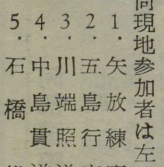 同現地参加者は左
1. 矢放練
2. 五島行
3. 川端照
4. 中島貫
5. 石橋